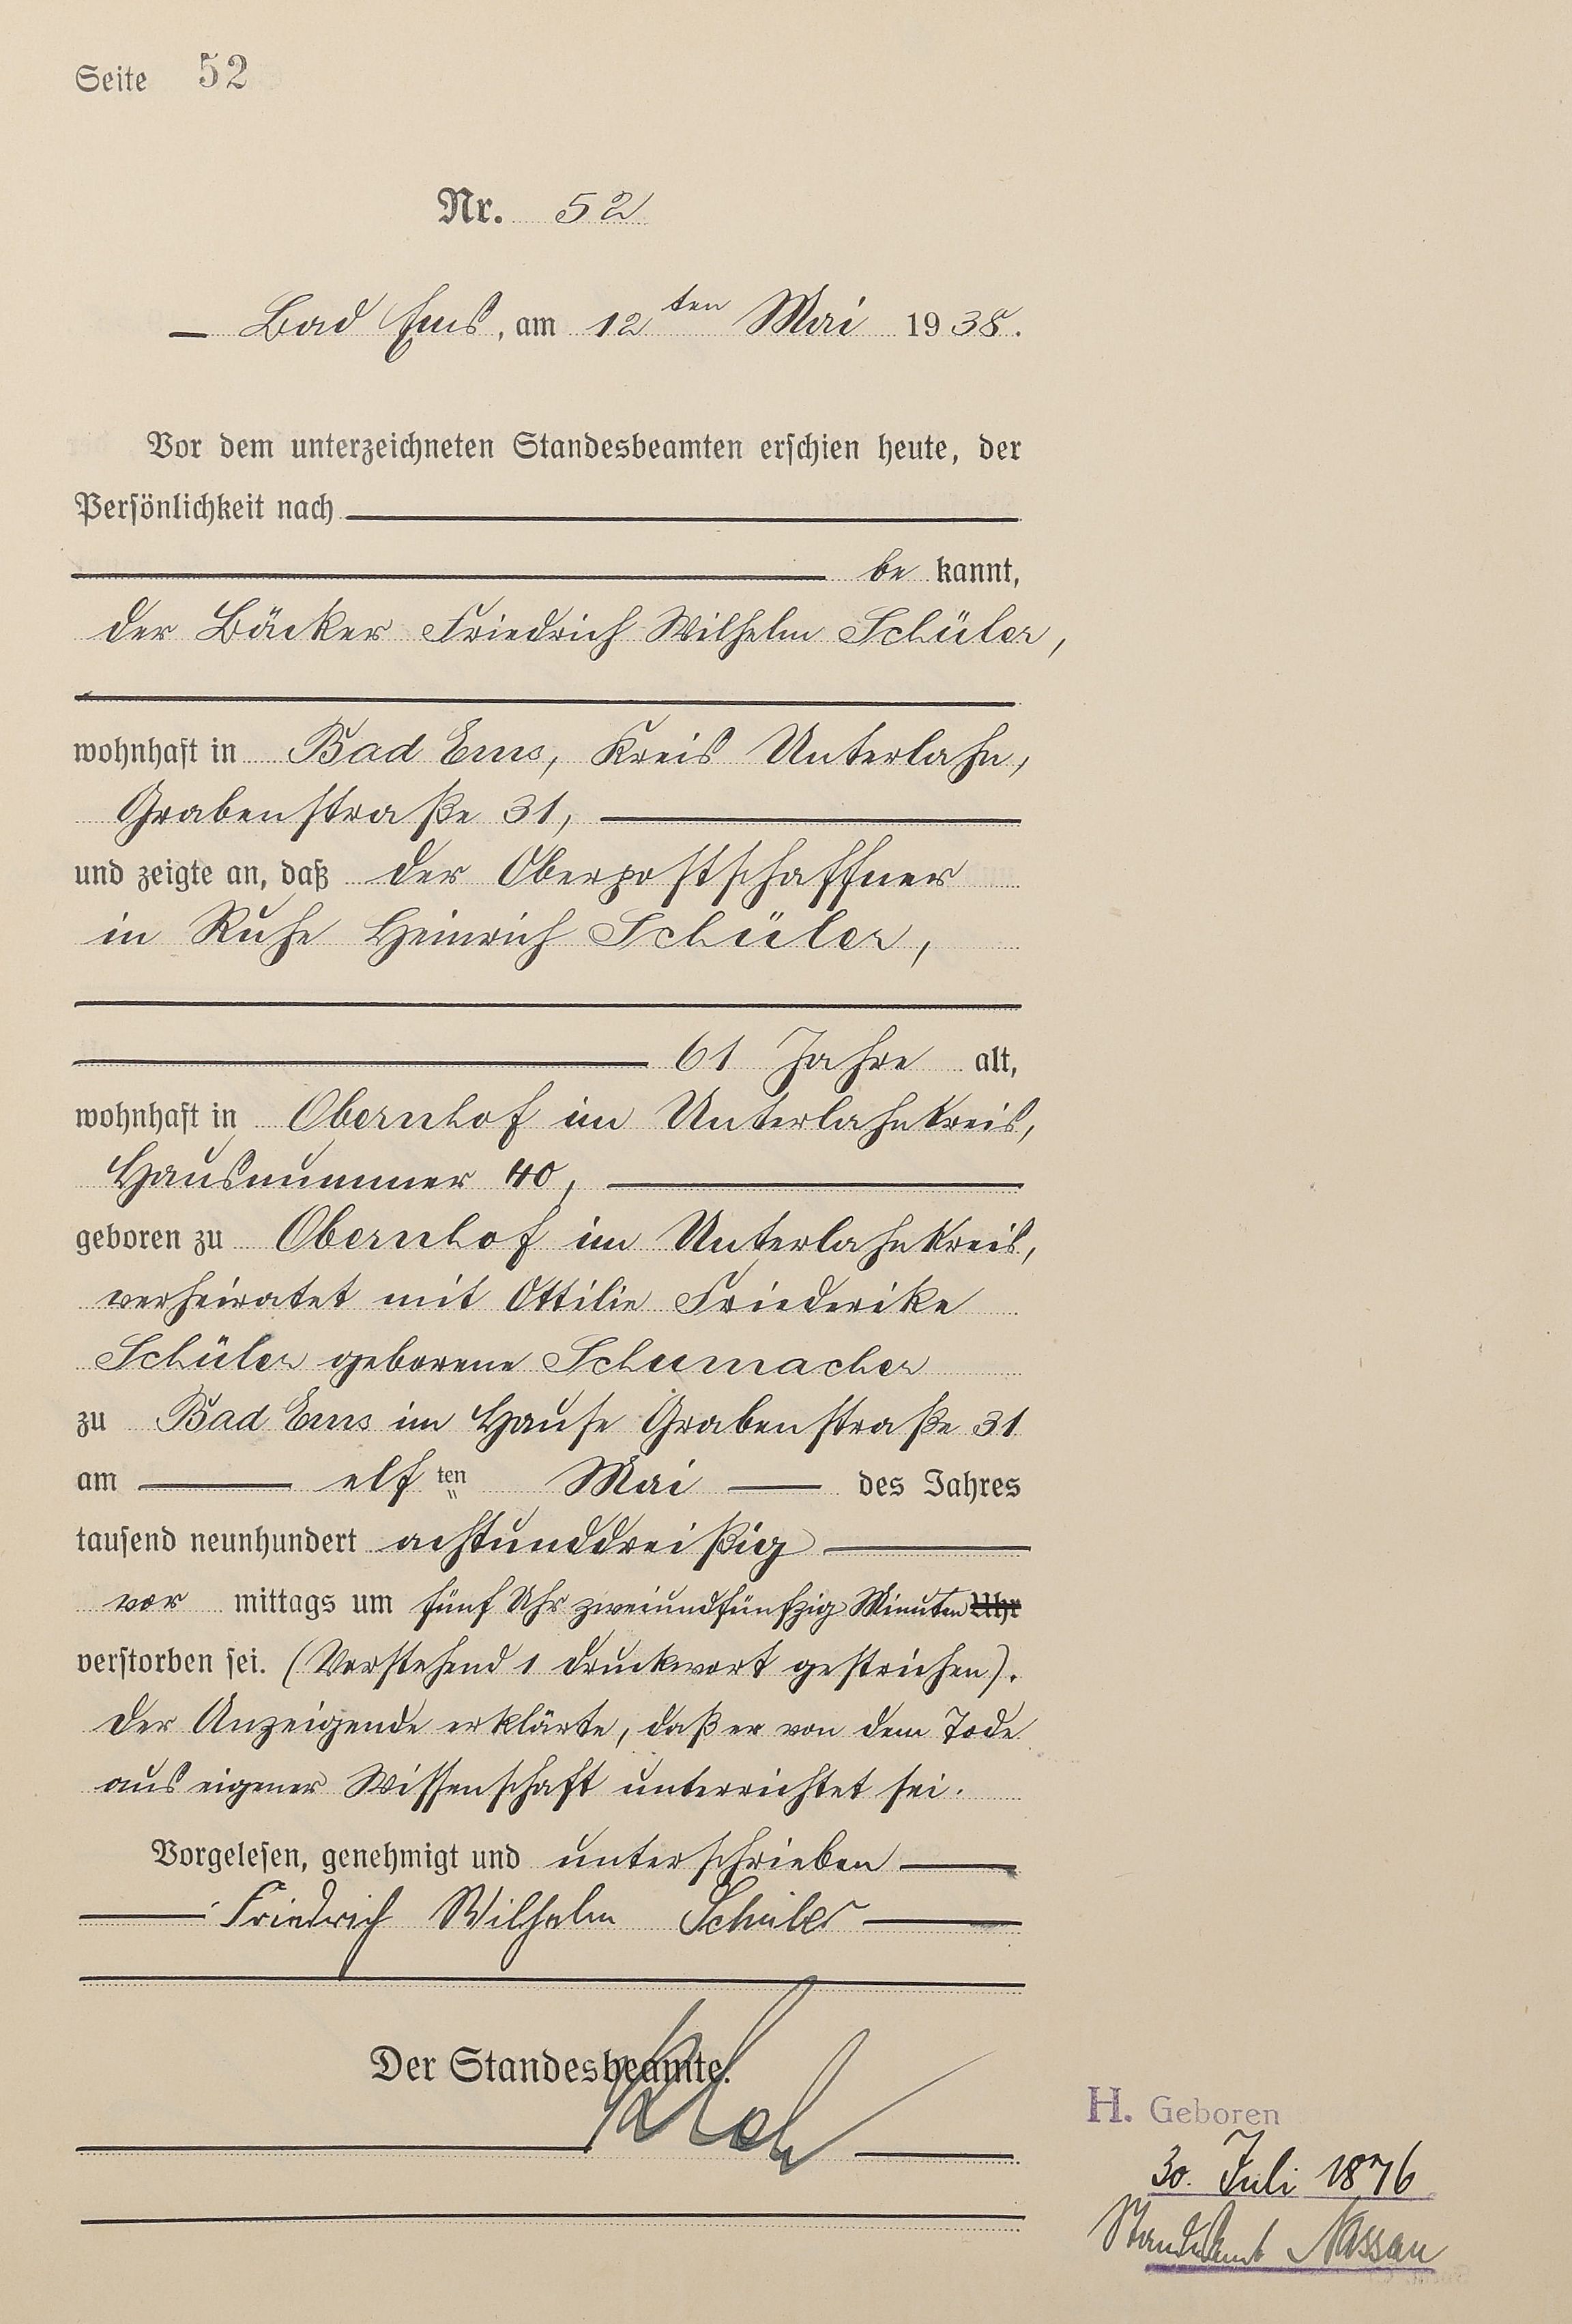 Seite 52
Nr. 52
Bad Ems, am 12ten Mai 1938.
Vor dem unterzeichneten Standesbeamten erschien heute, der
Persönlichkeit nach
be kannt,
der Bäcker Friedrich Wilhelm Schüler,
wohnhaft in Bad Ems, Kreis Unterlahn,
Grabenstraße 31,
und zeigte an, daß der Oberpostschaffner
in Ruhe Heinrich Schüler,
61 Jahre alt,
wohnhaft in Obernhof im Unterlahnkreis,
Hausnummer 40,
geboren zu Obernhof im Unterlahnkreis,
verheiratet mit Ottilie Friederike
Schüler geborene Schumacher
zu Bad Ems im Hause Grabenstraße 31
am elf ten Mai des Jahres
tausend neunhundert achtunddreißig
vor mittags um fünf Uhr zweiundfünfzig Minuten Uhr
verstorben sei. (Vorstehend 1 Druckwort gestrichen).
Der Anzeigende erklärte, daß er von dem Tode
aus eigener Wissenschaft unterrichtet sei.
Vorgelesen, genehmigt und unterschrieben
Friedrich Wilhelm Schüler
Der Standesbeamte.
H. Geboren
30. Juli 1876
Standesamt Nassau